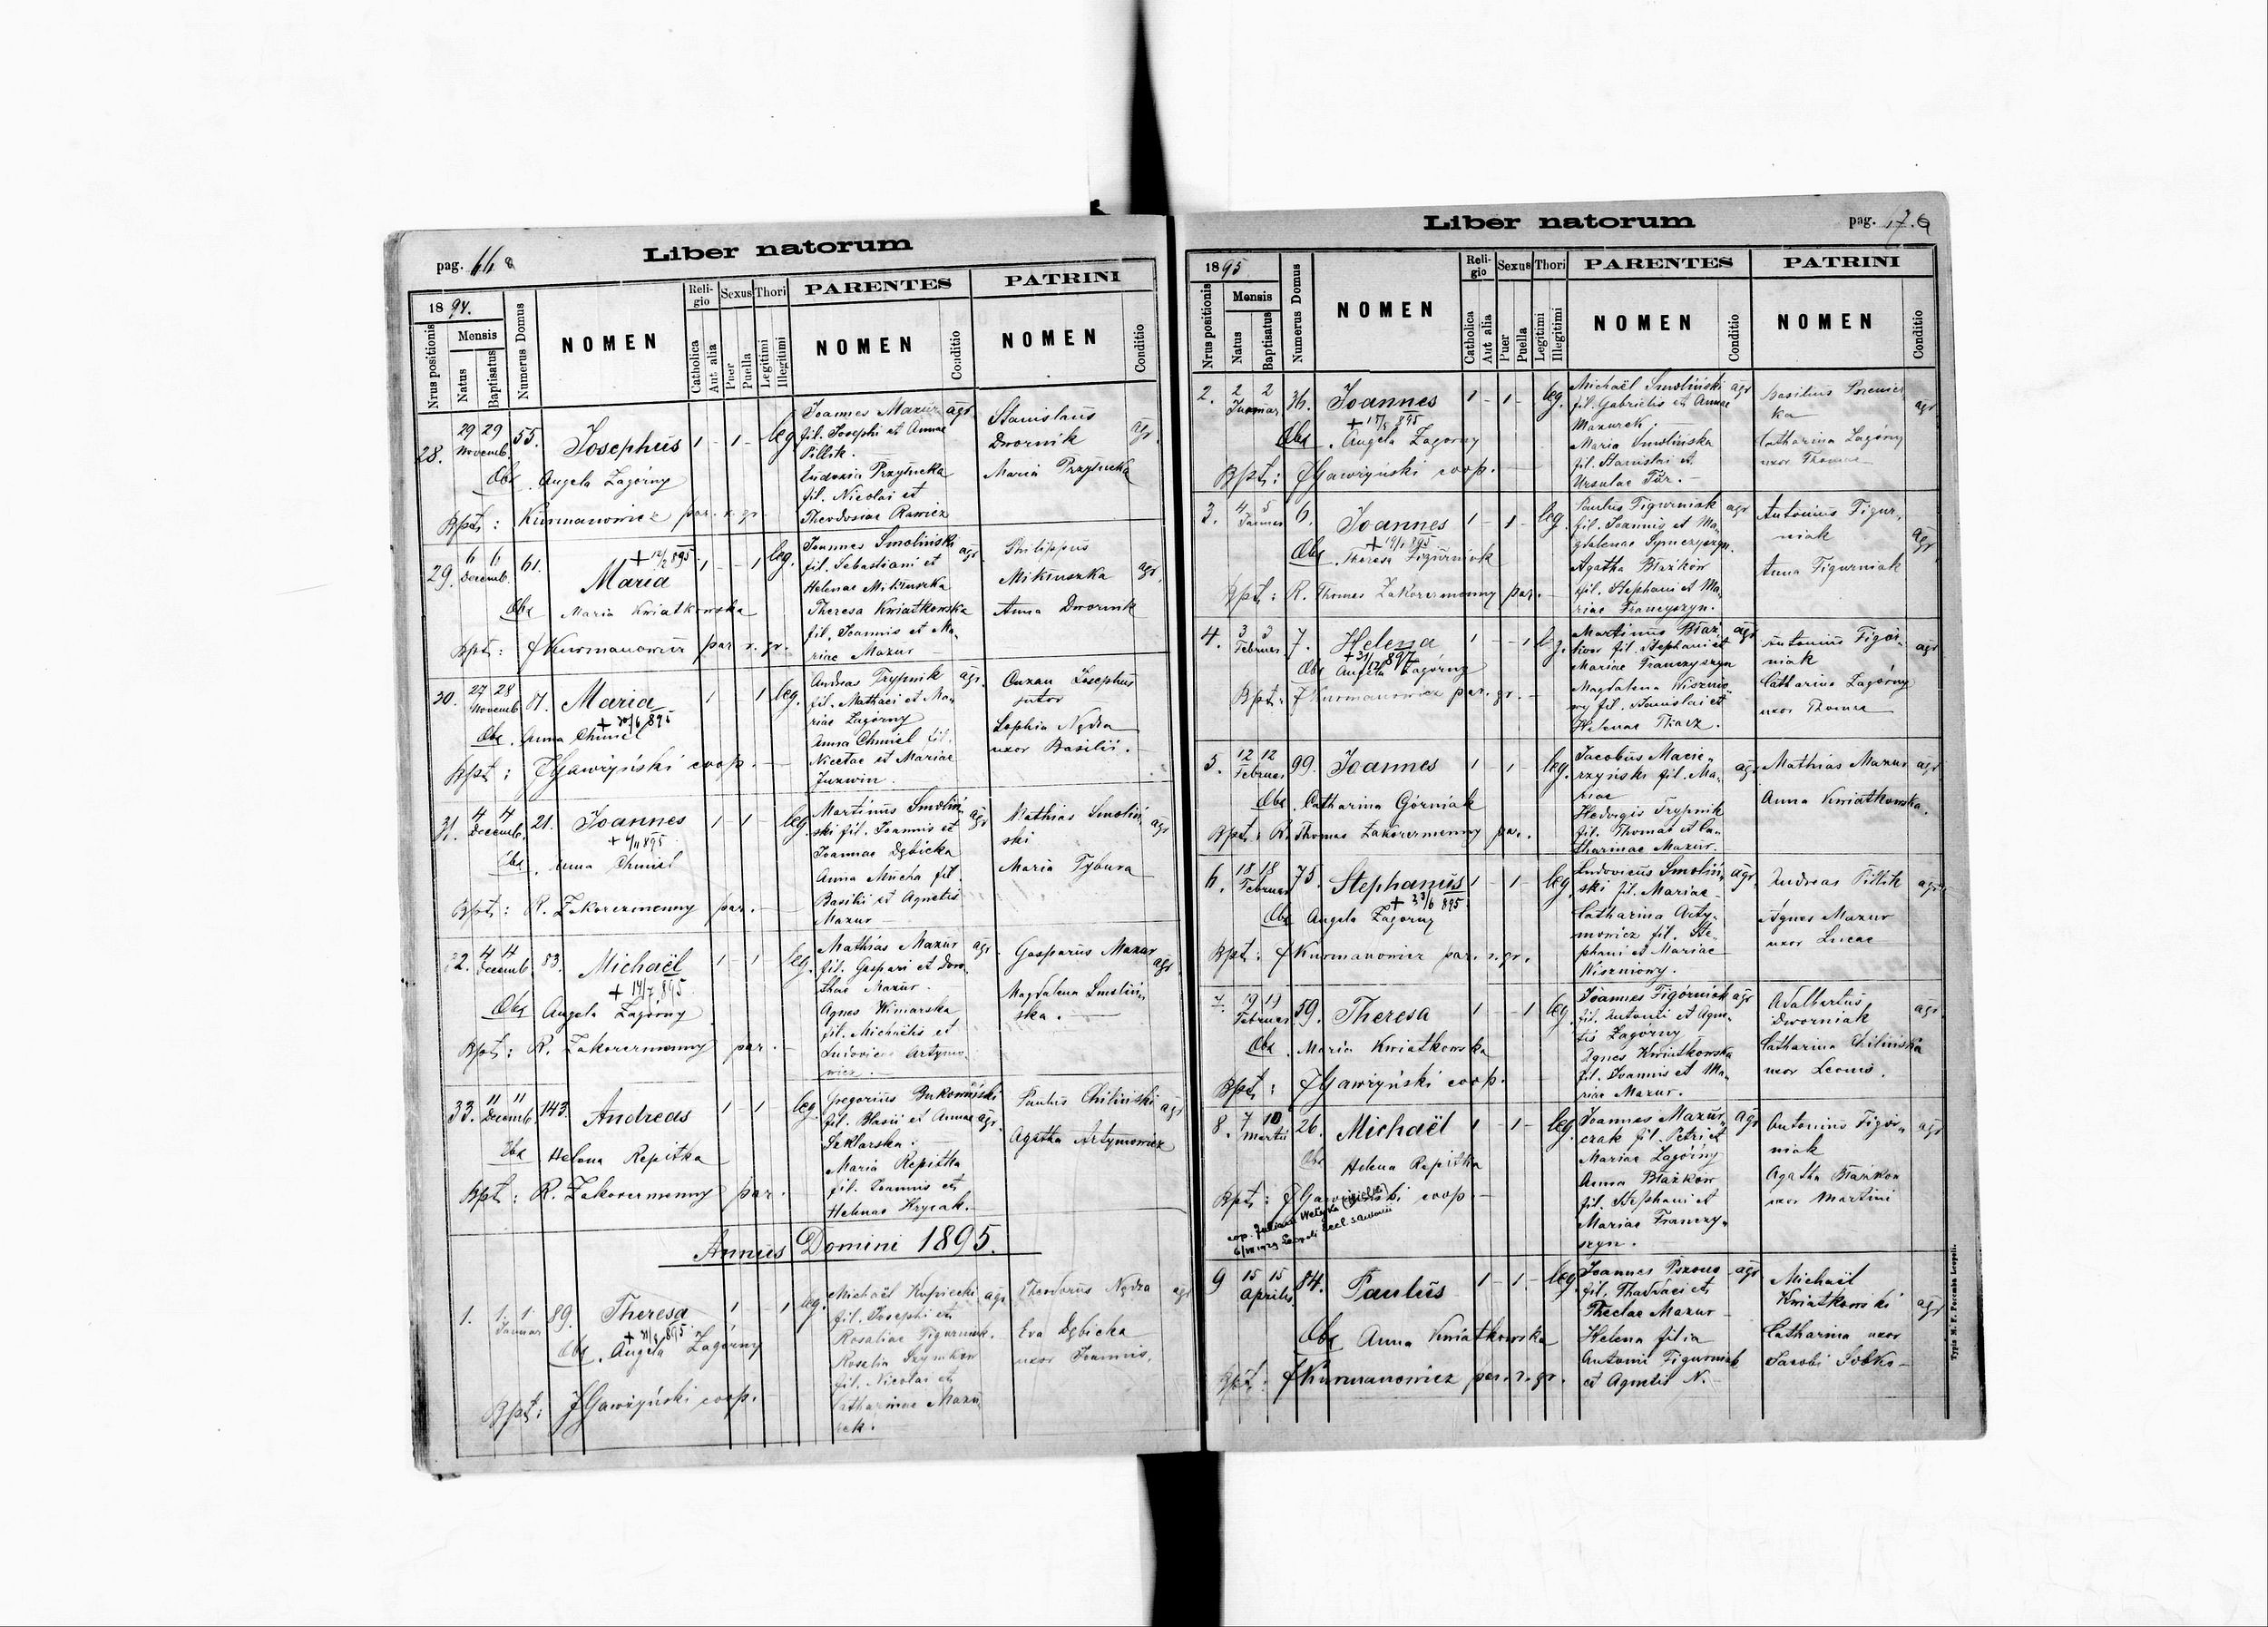 Liber natorum
pag. 66
1894.
Nrus positionis
Mensis
Natus
Baptisatus
Numerus Domus
NOMEN
Religio
Catholica
Aut alia
Sexus
Puer
Puella
Thori
Legitimi
Illegitimi
PARENTES
NOMEN
Conditio
PATRINI
NOMEN
Conditio
28.
29 29
Novemb.
55.
Josephus
1 1 leg.
Obs. Angela Zagórny
Bpt: Kurmanowicz par. r. gr.
Joannes Mazur agr.
fil. Josephi et Annae
Pillik.
Eudoxia Przytucka
fil. Nicolai et
Theodosiae Rawicz
Stanislaus
Dwornik agr.
Maria Przytucka
29.
6 6
Decemb.
61.
+ 12/2 895
Maria
1 1 leg.
Obs. Maria Kwiatkowska
Bpt: Kurmanowicz par r. gr.
Joannes Smoliński agr.
fil. Sebastiani et
Helenae Mikluszka
Theresa Kwiatkowska
fil. Joannis et Ma-
riae Mazur
Philippus
Mikluszka agr.
Anna Dwornik
30.
27 28
Novemb.
17.
Maria
1 1 leg.
Obs. Anna Chmiel
Bpt: J Gawryński coop.
Andreas Trypnik agr.
fil. Mathaei et Ma-
riae Zagórny
Anna Chmiel fil.
Nicetae et Mariae
Juzwin.
Josephus
sutor
Sophia Nędza
uxor Basilii.
31.
4 4
Decemb.
21.
Joannes
1 1 leg.
Obs. Anna Chmiel
Bpt: R. Zakorzmenny par.
Martinus Smoliń- agr.
ski fil. Joannis et
Joannae Dębicka
Anna Mucha fil.
Basilii et Agnetis
Mazur
Mathias Smoliń- agr
ski
Maria Tybura
32.
4 4
Decemb.
83.
Michaël
+ 14/7 895
1 1 leg.
Obs. Angela Zagórny
Bpt: R. Zakorzmenny par.
Mathias Mazur agr.
fil. Gaspari et Doro-
theae Mazur.
Agnes Winiarska
fil. Michaëlis et
Ludovicae Artymo-
wicz.
Gasparus Mazur agr
Magdalena Smoliń-
ska.
33.
11 11
Decemb.
143.
Andreas
1 1 leg.
Obs. Helena Repitka
Bpt: R. Zakorzmenny par.
Gregorius Bukowiński
fil. Blasii et Annae agr.
Szklarska.
Maria Repitka
fil. Joannis et
Helenae Hrycak.
Paulus Chiliński agr
Agatha Artymowicz
Annus Domini 1895.
1.
1. 1.
Januar
89.
Theresa
1 1 leg.
Obs. Angela Zagórny
Bpt: J Gawryński coop.
Michaël Kupiecki agr.
fil. Josephi et
Rosaliae Figurniak.
Rosalia Szymkow
fil. Nicolai et
Catharinae Mazu-
rek.
Theodorus Nędza agr
Eva Dębicka
uxor Joannis.
Liber natorum
pag. 67.
1895
Nrus positionis
Mensis
Natus
Baptisatus
Numerus Domus
NOMEN
Religio
Catholica
Aut alia
Sexus
Puer
Puella
Thori
Legitimi
Illegitimi
PARENTES
NOMEN
Conditio
PATRINI
NOMEN
Conditio
2.
2 2
Januar
36.
Joannes
1 1 leg.
Obs. Angela Zagórny
Bpt: J Gawryński coop.
Michaël Smoliński agr
fil. Gabrielis et Annae
Mazurek.
Maria Smolińska
fil. Stanislai et
Ursulae Tur.
Basilius
Catharina Zagórny
uxor Thomae
agr.
3.
4 5
Januar
6.
Joannes
1 1 leg.
Obs. Theresa Figurniak
Bpt: R. Thomas Zakorzmenny par.
Paulus Figurniak agr
fil. Joannis et Ma-
gdalenae Symczyszyn.
Agatha Błażków
fil. Stephani et Ma-
riae Franczyszyn.
Antonius Figur-
niak agr
Anna Figurniak
4.
3 3
Februar
7.
Helena
1 1 leg.
Obs. Angela Zagórny
Bpt. Kurmanowicz par. gr.
Martinus Błaż- agr
kow fil. Stephani et
Mariae Franczyszyn
Magdalena Wisznio-
wy fil. Stanislai et
Helenae Tkacz.
Antonius Figór-
niak agr
Catharina Zagórny
uxor Thomae
5.
12 12
Februar
99.
Joannes
1 1 leg.
Obs. Catharina Górniak
Bpt. R. Thomas Zakorzmenny par.
Jacobus Macie-
rzyński fil. Ma- agr
riae
Hedvigis Trypnik
fil. Thomae et Ca-
tharinae Mazur.
Mathias Mazur agr
Anna Kwiatkowska
6.
18 18
Februar
75.
Stephanus
1 1 leg.
Obs Angela Zagórny
Bpt: Kurmanowicz par. r. gr.
Ludovicus Smoliń- agr.
ski fil. Mariae
Catharina Arty-
mowicz fil. Ste-
phani et Mariae
Wiszniowy.
Andreas Pillik agr.
Agnes Mazur
uxor Lucae
7.
19 19
Februar
59.
Theresa
1 1 leg.
Obs. Maria Kwiatkowska
Bpt: J Gawryński coop.
Joannes Figórniak agr
fil. Antonii et Agne-
tis Zagórny
Agnes Kwiatkowska
fil. Joannis et Ma-
riae Mazur.
Adalbertus agr.
Dworniak
Catharina Chilińska
uxor Leonis.
8.
7 10
Martii
26.
Michaël
1 1 leg.
Obs Helena Repitka
Bpt: J Gawryński coop.
Joannes Mazur- agr
czak fil. Petri et
Mariae Zagórny
Anna Błażków
fil. Stephani et
Mariae Franczy-
szyn.
Antonius Figór- agr
niak
Agatha Błażkow
uxor Martini
9
15 15
Aprilis
84.
Paulus
1 1 leg.
Obs Anna Kwiatkowska
Bpt: Kurmanowicz par. r. gr.
Joannes agr
fil. Thadaei et
Theclae Mazur
Helena filia
Antonii Figurniak
et Agnetis N.
Michaël
Kwiatkowski agr
Catharina uxor
Jacobi Sobko
Typis M. F. Poremba Leopoli.